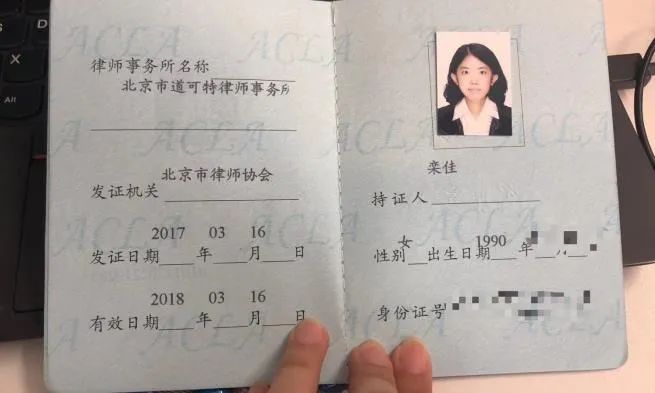 律师事务所名称
北京市道可特律师事务所
北京市律师协会
发证机关
2017 03 16
发证日期 年 月 日
2018 03 16
有效日期 年 月 日
栾佳
持证人
女 1990
性别 出生日期 年
身份证号
ACLA
Alt